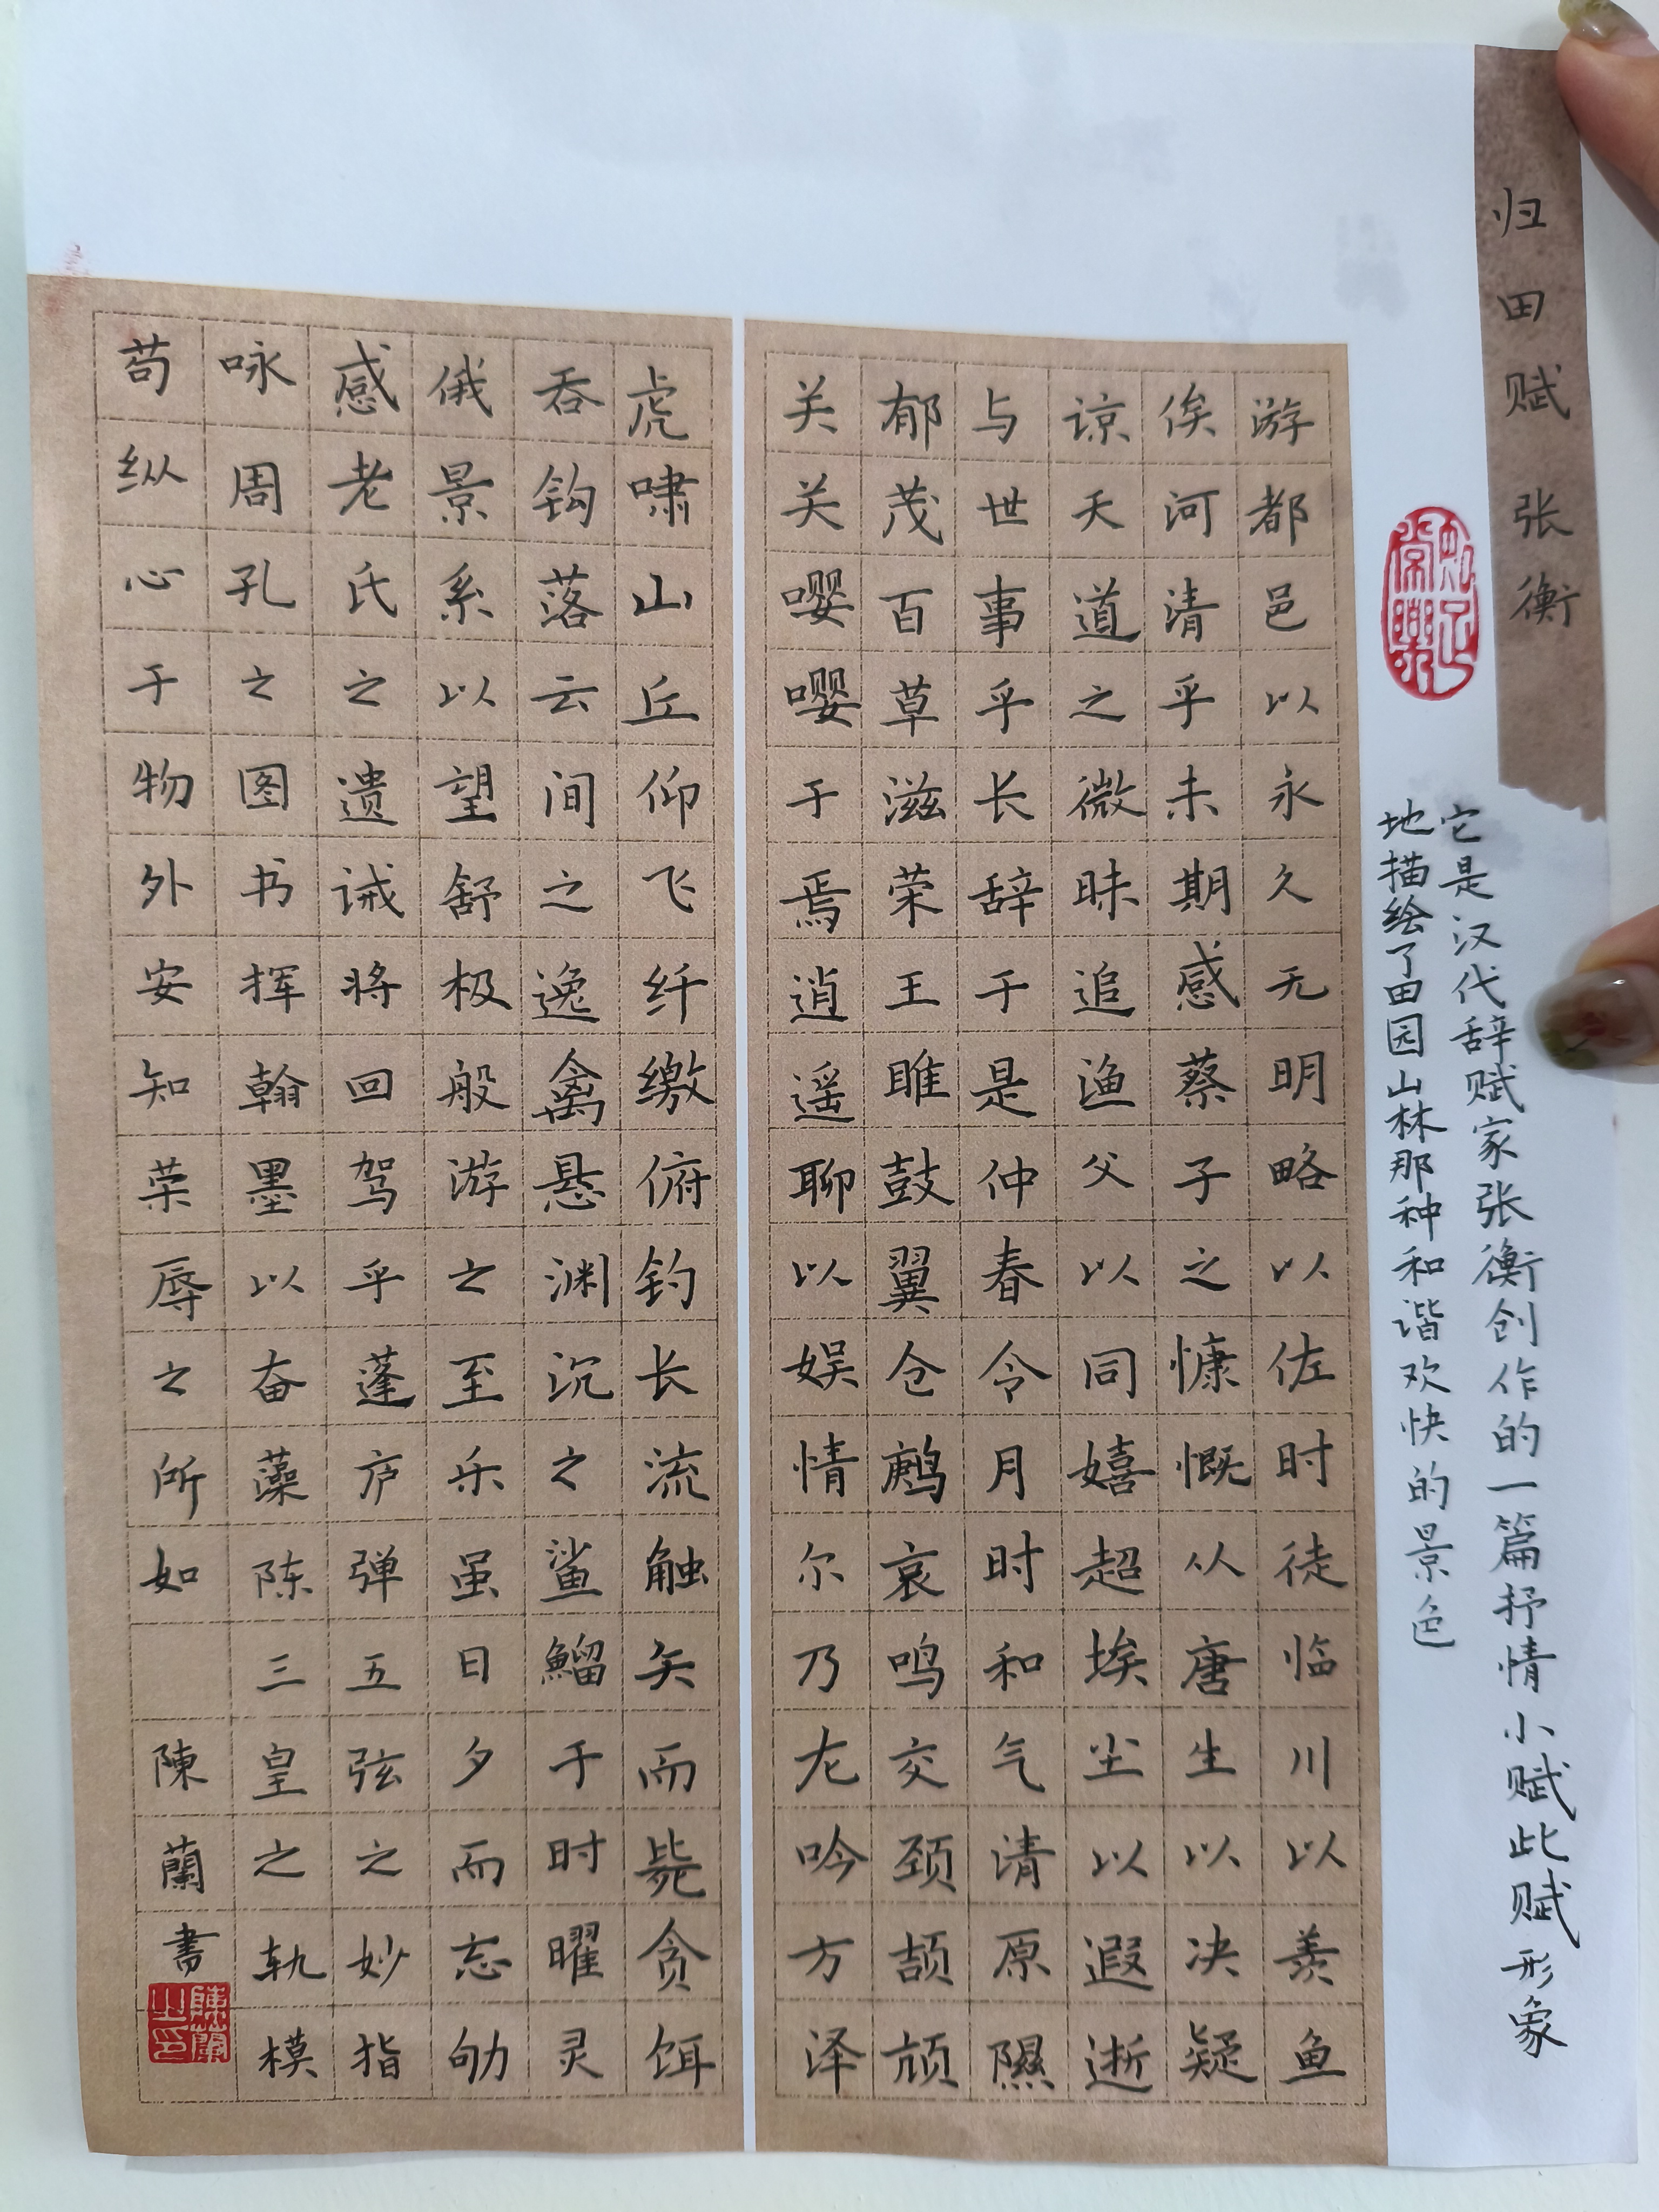 归田赋 张衡
知足常樂
它是汉代辞赋家张衡创作的一篇抒情小赋此赋形象
地描绘了田园山林那种和谐欢快的景色
游都邑以永久无明略以佐时徒临川以羡鱼
俟河清乎未期感蔡子之慷慨从唐生以决疑
谅天道之微昧追渔父以同嬉超埃尘以遐逝
与世事乎长辞于是仲春令月时和气清原隰
郁茂百草滋荣王雎鼓翼仓鹒哀鸣交颈颉颃
关关嘤嘤于焉逍遥聊以娱情尔乃龙吟方泽
虎啸山丘仰飞纤缴俯钓长流触矢而毙贪饵
吞钩落云间之逸禽悬渊沉之鲨鰡于时曜灵
俄景系以望舒极般游之至乐虽日夕而忘劬
感老氏之遗诫将回驾乎蓬庐弹五弦之妙指
咏周孔之图书挥翰墨以奋藻陈三皇之轨模
苟纵心于物外安知荣辱之所如 陳蘭書
陳蘭之印